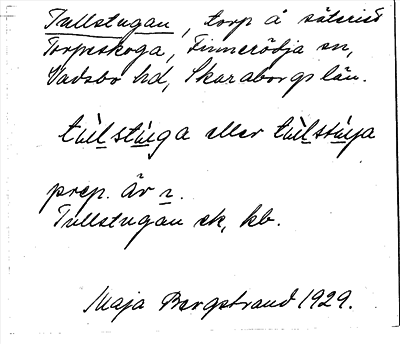 Tullstugan, torp å säteriet
Torpeskoga, Finnerödja sn,
Vadsbo hd, Skaraborgs län.
tùlstùga eller tùlstùja
prep. är i.
Tullstugan ek, kb.
Maja Bergstrand 1929.